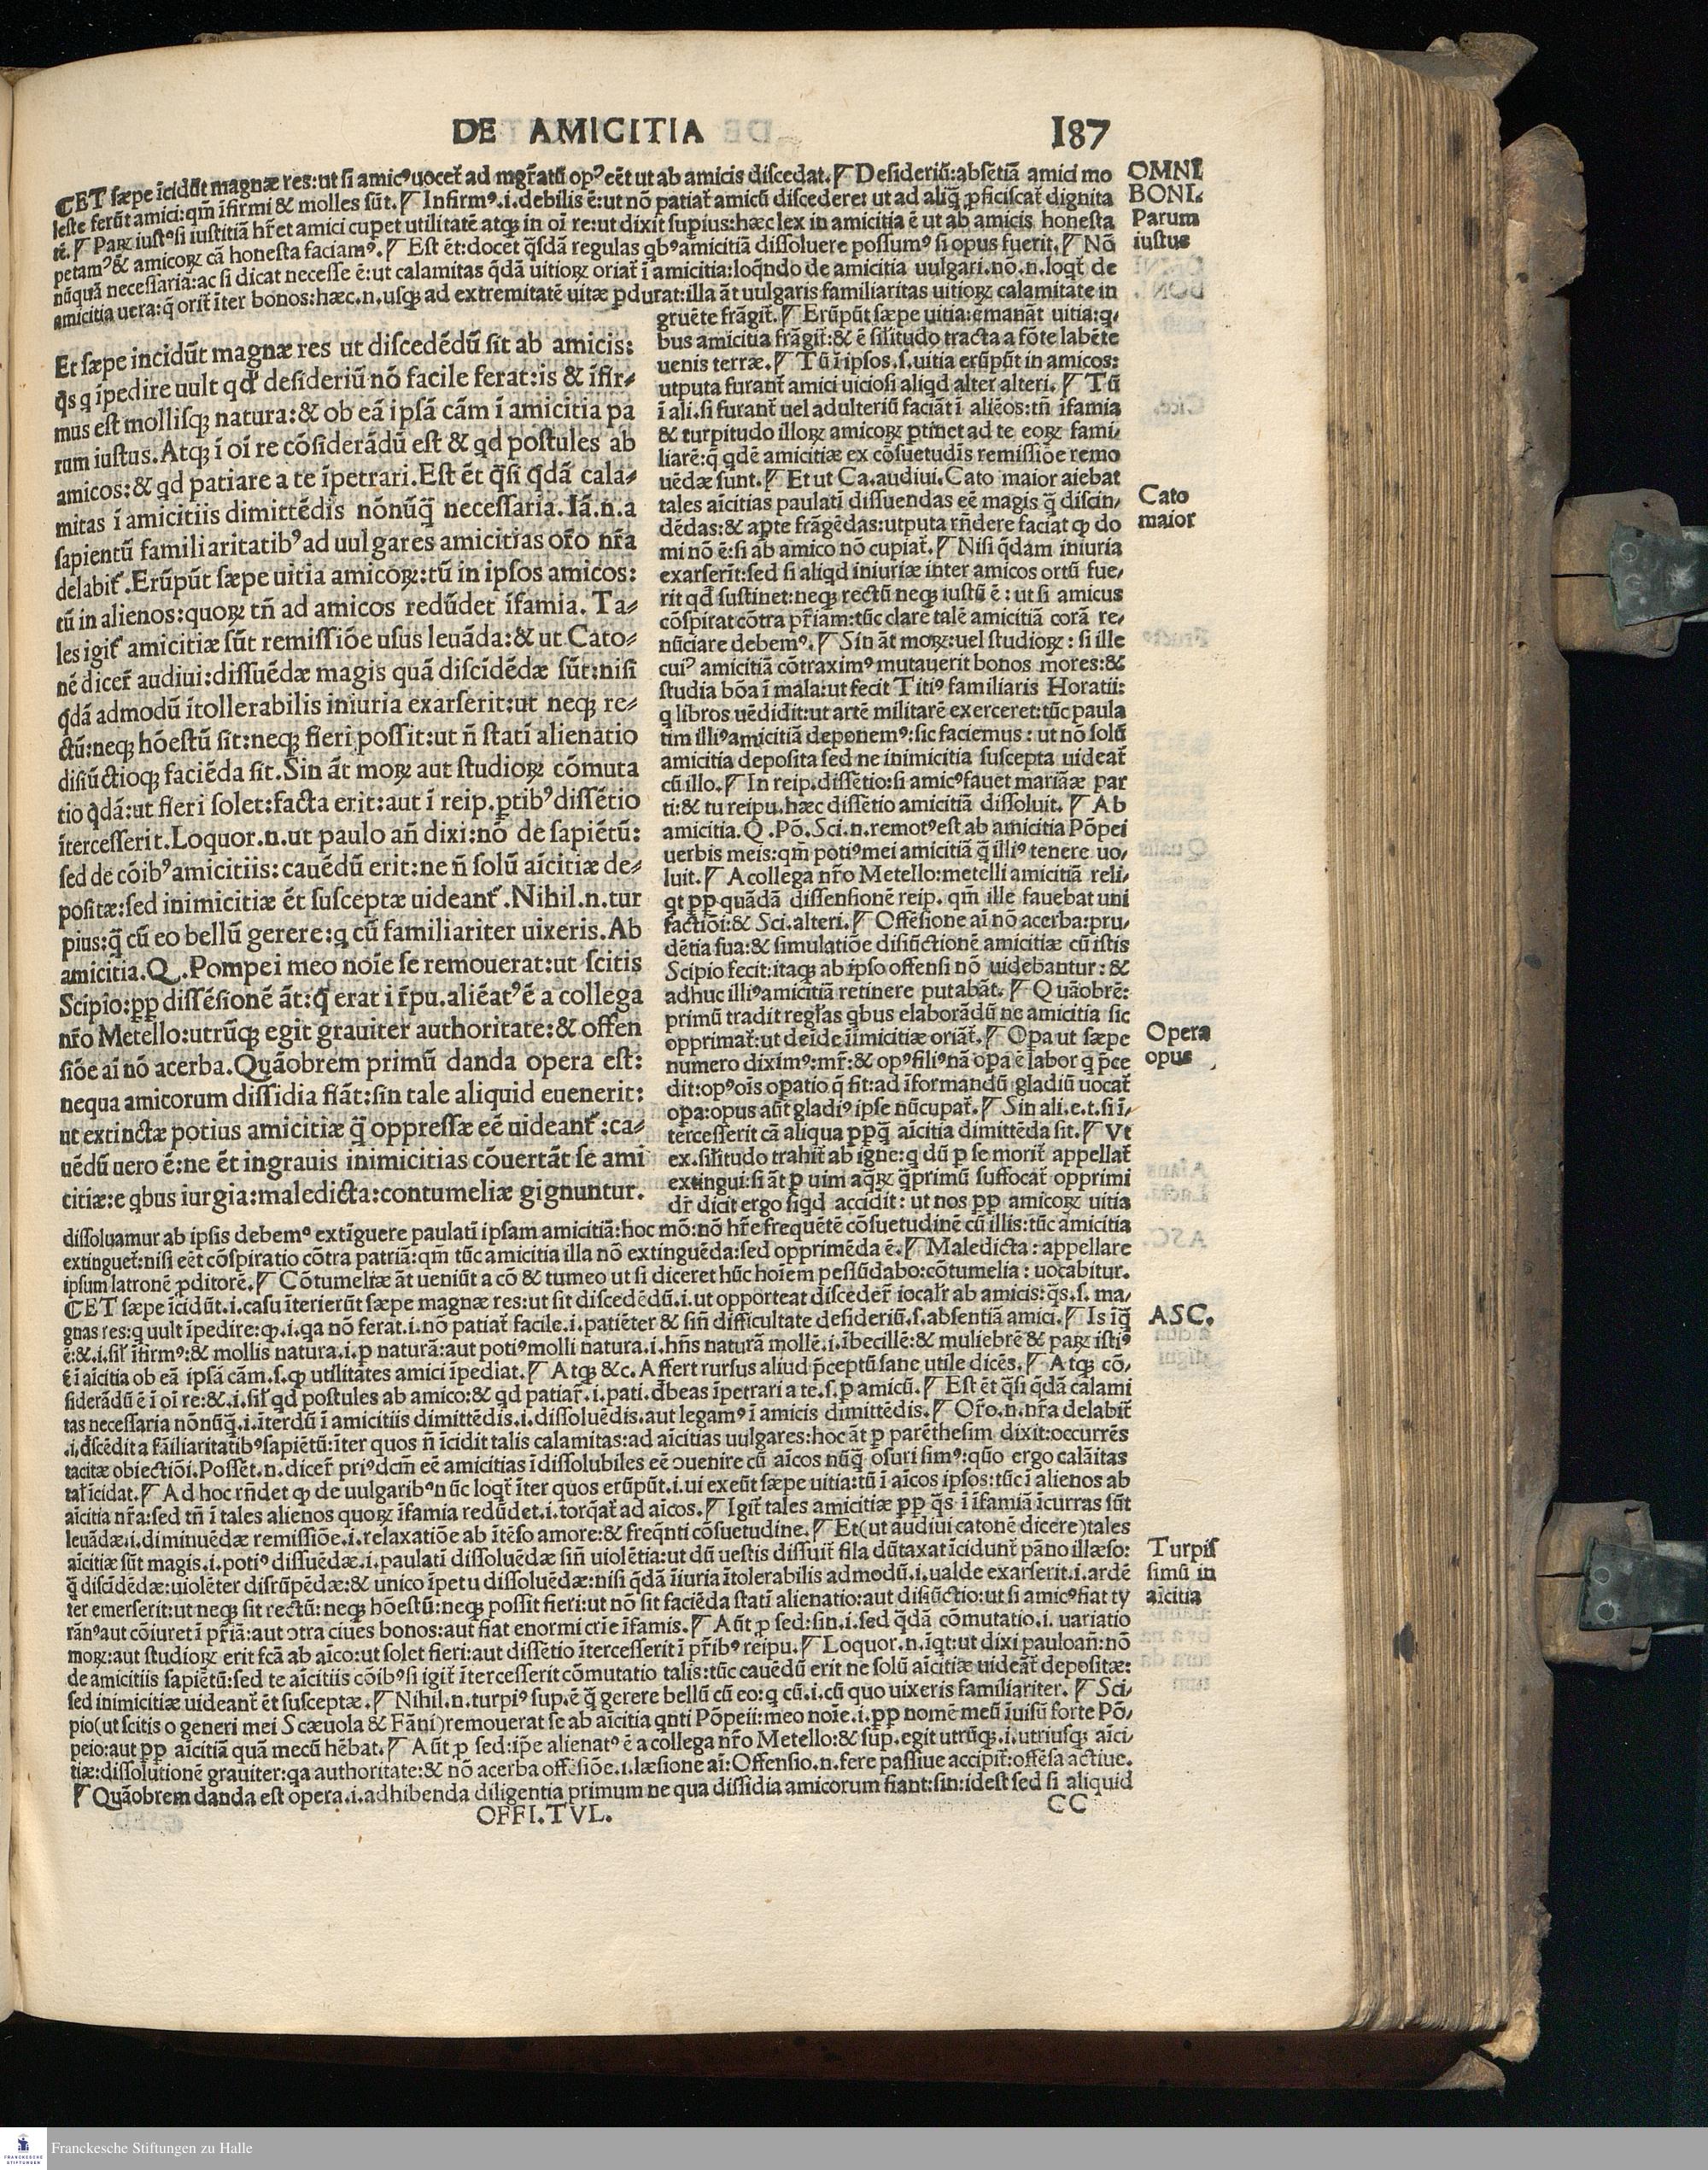 DE AMICITIA
187
CET sæpe ĩcidũt magnæ res:ut si amicꝰ uocet̃ ad mgr̃atũ opꝰ eẽt ut ab amicis discedat.¶ Desideriũ:absẽtiã amici mo
leste ferũt amici:qm̃ ĩfirmi & molles sũt.¶ Infirmꝰ.i.debilis ẽ:ut nõ patiat̃ amicũ discedere: ut ad aliq̃ ꝓficiscat̃ dignita
tẽ.¶ Paꝝ iustꝰ si iustitiã hr̃et amici cupet utilitatẽ atqꝫ in oĩ re:ut dixit supius:hæc lex in amicitia ẽ ut ab amicis honesta
petamꝰ & amicoꝝ cã honesta faciamꝰ.¶ Est ẽt:docet q̃sdã regulas qbꝰ amicitiã dissoluere possumꝰ si opus fuerit.¶ Nõ
nũquã necessaria:ac si dicat necesse ẽ:ut calamitas q̃dã uitioꝝ oriat̃ ĩ amicitia:loq̃ndo de amicitia uulgari.nõ.n.loqt̃ de
amicitia uera:q̃ orit̃ ĩter bonos:hæc.n.usqꝫ ad extremitatẽ uitæ ꝑdurat:illa ãt uulgaris familiaritas uitioꝝ calamitate in
OMNI
BONI.
Parum
iustus
Et sæpe incidũt magnæ res ut discedẽdũ sit ab amicis:
q̃s q ĩpedire uult qđ desideriũ nõ facile ferat:is & ĩfir-
mus est mollisqꝫ natura:& ob eã ipsã cãm ĩ amicitia pa
rum iustus.Atqꝫ ĩ oĩ re cõsiderãdũ est & qd postules ab
amicos:& qd patiare a te ĩpetrari.Est ẽt q̃si q̃dã cala-
mitas ĩ amicitiis dimittẽdis nõnũq̃ necessaria.Iã.n.a
sapientũ familiaritatibꝰ ad uulgares amicitias or̃o nr̃a
delabit̃.Erũpũt sæpe uitia amicoꝝ:tũ in ipsos amicos:
tũ in alienos:quoꝝ tñ ad amicos redũdet ĩfamia. Ta-
les igit̃ amicitiæ sũt remissiõe usus leuãda:& ut Cato-
nẽ dicer̃ audiui:dissuẽdæ magis quã discĩdẽdæ sũt:nisi
q̃dã admodũ ĩtollerabilis iniuria exarserit:ut neqꝫ re-
ctũ:neqꝫ hõestũ sit:neqꝫ fieri possit:ut ñ statĩ alienatio
disiũctioqꝫ faciẽda sit.Sin ãt moꝝ aut studioꝝ cõmuta
tio q̃dã:ut fieri solet:facta erit:aut ĩ reip.ꝑtibꝰ dissẽtio
ĩtercesserit.Loquor.n.ut paulo añ dixi:nõ de sapiẽtũ:
sed de cõibꝰ amicitiis:cauẽdũ erit:ne ñ solũ aĩcitiæ de-
positæ:sed inimicitiæ ẽt susceptæ uideant̃.Nihil.n.tur
pius:q̃ cũ eo bellũ gerere:q cũ familiariter uixeris.Ab
amicitia.Q.Pompei meo noĩe se remouerat:ut scitis
Scipio:ꝓꝑ dissẽsionẽ ãt:q̃ erat i r̃pu.aliẽatꝰ ẽ a collega
nr̃o Metello:utrũqꝫ egit grauiter authoritate:& offen
siõe aĩ nõ acerba.Quãobrem primũ danda opera est:
nequa amicorum dissidia fiãt:sin tale aliquid euenerit:
ut extinctæ potius amicitiæ q̃ oppressæ eẽ uideant̃:ca-
uẽdũ uero ẽ:ne ẽt ingrauis inimicitias cõuertãt se ami
citiæ:e qbus iurgia:maledicta:contumeliæ gignuntur.
gruẽte frãgit̃.¶ Erũpũt sæpe uitia:emanãt uitia:q,
bus amicitia frãgit̃:& ẽ silitudo tracta a fõte labẽte
uenis terræ.¶ Tũ ĩ ipsos.s.uitia erũpũt in amicos:
utputa furant̃ amici uiciosi aliqd alter alteri.¶ Tũ
ĩ ali.si furant̃ uel adulteriũ faciãt ĩ aliẽos:tñ ĩfamia
& turpitudo illoꝝ amicoꝝ ꝑtinet ad te eoꝝ fami,
liarẽ:q̃ qdẽ amicitiæ ex cõsuetudĩs remissiõe remo
uẽdæ sunt.¶ Et ut Ca.audiui.Cato maior aiebat
tales aĩcitias paulatĩ dissuendas eẽ magis q̃ discin,
dẽdas:& aꝑte frãgẽdas:utputa rñdere faciat ꝙ do
mi nõ ẽ:si ab amico nõ cupiat̃.¶ Nisi q̃dam iniuria
exarserĩt:sed si aliqd iniuriæ inter amicos ortũ fue,
rit qđ sustinet:neqꝫ rectũ neqꝫ iustũ ẽ: ut si amicus
cõspirat cõtra pr̃iam:tũc clare talẽ amicitiã corã re,
nũciare debemꝰ.¶ Sin ãt moꝝ:uel studioꝝ: si ille
cuiꝰ amicitiã cõtraximꝰ mutauerit bonos mores:&
studia bõa ĩ mala:ut fecit Titiꝰ familiaris Horatii:
q libros uẽdidit:ut artẽ militarẽ exerceret:tũc paula
tim illiꝰ amicitiã deponemꝰ:sic faciemus: ut nõ solũ
amicitia deposita sed ne inimicitia suscepta uideat̃
cũ illo.¶ In reip.dissẽtio:si amicꝰ fauet mariãæ par
ti:& tu reipu.hæc dissẽtio amicitiã dissoluit.¶ Ab
amicitia.Q.Põ.Sci.n.remotꝰ est ab amicitia Põpei
uerbis meis:qm̃ potiꝰ mei amicitiã q̃ illiꝰ tenere uo,
luit.¶ A collega nr̃o Metello:metelli amicitiã reli,
qt ꝓꝑ quãdã dissensionẽ reip. qm̃ ille fauebat uni
factiõi:& Sci.alteri.¶ Offẽsione aĩ nõ acerba:pru,
dẽtia sua:& simulatiõe disiũctionẽ amicitiæ cũ istis
Scipio fecit:itaqꝫ ab ipso offensi nõ uidebantur: &
adhuc illiꝰ amicitiã retinere putabãt.¶ Quãobrẽ:
primũ tradit regl̃as qbus elaborãdũ ne amicitia sic
opprimat̃:ut deĩde ĩimicitiæ oriãt̃.¶ Oꝑa ut sæpe
numero diximꝰ:mr̃:& opꝰ filiꝰ nã oꝑa ẽ labor q p̃ce
dit:opꝰ oĩs oꝑatio q̃ fit:ad ĩformandũ gladiũ uocat̃
oꝑa:opus aũt gladiꝰ ipse nũcupat̃.¶ Sin ali.e.t.si ĩ,
tercesserit cã aliqua ꝓꝑq̃ aĩcitia dimittẽda sit.¶ Vt
ex.silitudo trahit̃ ab igne:q dũ ꝑ se morit̃ appellat̃
extingui:si ãt ꝑ uim aq̃ꝝ q̃primũ suffocat̃ opprimi
dr̃ dicit ergo siqd accidit: ut nos ꝓꝑ amicoꝝ uitia
Cato
maior
Opera
opus
dissoluamur ab ipsis debemꝰ extĩguere paulatĩ ipsam amicitiã:hoc mõ:nõ hr̃e frequẽtẽ cõsuetudinẽ cũ illis:tũc amicitia
extinguet̃:nisi eẽt cõspiratio cõtra patriã:qm̃ tũc amicitia illa nõ extinguẽda:sed opprimẽda ẽ.¶ Maledicta: appellare
ipsum latronẽ ꝓditorẽ.¶ Cõtumeliæ ãt ueniũt a cõ & tumeo ut si diceret hũc hoĩem pessũdabo:cõtumelia: uocabitur.
CET sæpe ĩcidũt.i.casu ĩterierũt sæpe magnæ res:ut sit discedẽdũ.i.ut opporteat discedẽr iocalr̃ ab amicis:q̃s.s. ma,
gnas res:q uult ĩpedire:ꝙ.i.qa nõ ferat.i.nõ patiat̃ facile.i.patiẽter & siñ difficultate desideriũ.s.absentiã amici.¶ Is ĩq̃
ẽ:&.i.sil̃ ĩfirmꝰ:& mollis natura.i.ꝑ naturã:aut potiꝰ molli natura.i.hñs naturã mollẽ.i.ĩbecillẽ:& muliebrẽ & paꝝ istiꝰ
ẽ ĩ aĩcitia ob eã ipsã cãm.s.ꝙ utilitates amici ĩpediat.¶ Atqꝫ &c. Affert rursus aliud p̃ceptũ sane utile dicẽs.¶ Atqꝫ cõ,
siderãdũ ẽ ĩ oĩ re:&.i.sil̃ qd postules ab amico:& qd patiar̃.i.pati.đbeas ĩpetrari a te.s.ꝑ amicũ.¶ Est ẽt q̃si q̃dã calami
tas necessaria nõnũq̃.i.ĩterdũ ĩ amicitiis dimittẽdis.i.dissoluẽdis.aut legamꝰ ĩ amicis dimittẽdis.¶ Or̃o.n.nr̃a delabit̃
.i.đscẽdit a fãiliaritatibꝰ sapiẽtũ:ĩter quos ñ ĩcidit talis calamitas:ad aĩcitias uulgares:hoc ãt ꝑ parẽthesim dixit:occurrẽs
tacitæ obiectiõi.Possẽt.n.dicer̃ priꝰ dcm̃ eẽ amicitias ĩdissolubiles eẽ ↄuenire cũ aĩcos nũq̃ osuri simꝰ:quõ ergo calãitas
tal̃ ĩcidat.¶ Ad hoc rñdet ꝙ de uulgaribꝰ nũc loqt̃ ĩter quos erũpũt.i.ui exeũt sæpe uitia:tũ ĩ aĩcos ipsos:tũc ĩ alienos ab
aĩcitia nr̃a:sed tñ ĩ tales alienos quoꝝ ĩfamia redũdet.i.torq̃at̃ ad aĩcos.¶ Igit̃ tales amicitiæ ꝓꝑ q̃s ĩ ĩfamiã ĩcurras sũt
leuãdæ.i.diminuẽdæ remissiõe.i.relaxatiõe ab ĩtẽso amore:& freq̃nti cõsuetudine.¶ Et(ut audiui catonẽ dicere)tales
aĩcitiæ sũt magis.i.potiꝰ dissuẽdæ.i.paulatĩ dissoluẽdæ siñ uiolẽtia:ut dũ uestis dissuit̃ fila dũtaxat ĩcidunt̃ pãno illæso:
q̃ discĩdẽdæ:uiolẽter disrũpẽdæ:& unico ĩpetu dissoluẽdæ:nisi q̃dã ĩiuria ĩtolerabilis admodũ.i.ualde exarserit.i.ardẽ
ter emerserit:ut neqꝫ sit rectũ:neqꝫ hõestũ:neqꝫ possit fieri:ut nõ sit faciẽda statĩ alienatio:aut disiũctio:ut si amicꝰ fiat ty
rãnꝰ aut cõiuret ĩ pr̃iã:aut ↄtra ciues bonos:aut fiat enormi crĩe ĩfamis.¶ Aũt ꝑ sed:sin.i.sed q̃dã cõmutatio.i. uariatio
moꝝ:aut studioꝝ erit fcã ab aĩco:ut solet fieri:aut dissẽtio ĩtercesserit ĩ pr̃ibꝰ reipu.¶ Loquor.n.ĩqt:ut dixi pauloañ:nõ
de amicitiis sapiẽtũ:sed te aĩcitiis cõibꝰ si igit̃ ĩtercesserit cõmutatio talis:tũc cauẽdũ erit ne solũ aĩcitiæ uideãt̃ depositæ:
sed inimicitiæ uideant̃ ẽt susceptæ.¶ Nihil.n.turpiꝰ sup.ẽ q̃ gerere bellũ cũ eo:q cũ.i.cũ quo uixeris familiariter.¶ Sci,
pio(ut scitis o generi mei Scæuola & Fãni)remouerat se ab aĩcitia qnti Põpeii:meo noĩe.i.ꝓꝑ nomẽ meũ ĩuisũ forte Põ,
peio:aut ꝓꝑ aĩcitiã quã mecũ hẽbat.¶ Aũt ꝑ sed:ip̃e alienatꝰ ẽ a collega nr̃o Metello:& sup.egit utrũqꝫ.i.utriusqꝫ aĩci,
tiæ:dissolutionẽ grauiter:qa authoritate:& nõ acerba offẽsiõe.i.læsione aĩ:Offensio.n.fere passiue accipit̃:offẽsa actiue.
¶ Quãobrem danda est opera.i.adhibenda diligentia primum ne qua dissidia amicorum fiant:sin:idest sed si aliquid
ASC.
Turpis
simũ in
aĩcitia
OFFI.TVL.
CC
Franckesche Stiftungen zu Halle